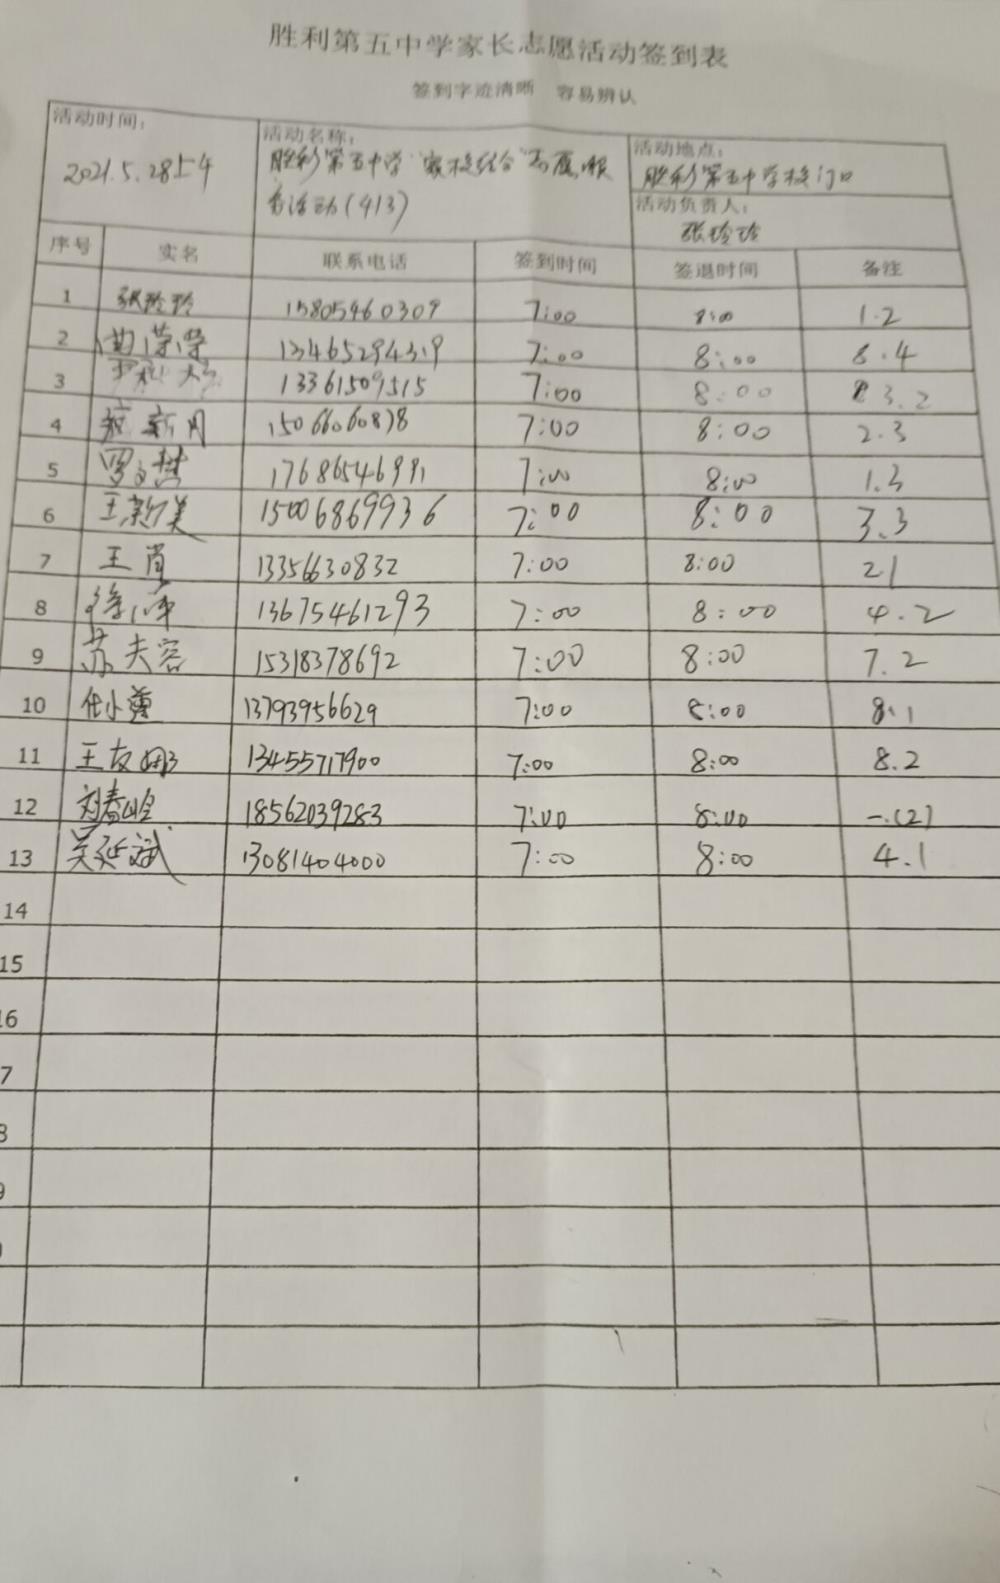 胜利第五中学家长志愿活动签到表
签到字迹清晰 容易辨认
活动时间: 2021.5.28上午
活动名称: 胜利第五中学“家校结合”志愿服
务活动(413)
活动地点: 胜利第五中学校门口
活动负责人: 张玲玲
序号 实名 联系电话 签到时间 签退时间 备注
1 张玲玲 15805460309 7:00 8:00 1.2
2 曲荣荣 13465294319 7:00 8:00 8.4
3 13361509515 7:00 8:00 3.2
4 新月 15066060878 7:00 8:00 2.3
5 罗文 17686546991 7:00 8:00 1.3
6 王新美 15006869936 7:00 8:00 3.3
7 王肖 13356630832 7:00 8:00 21
8 徐 13675461293 7:00 8:00 4.2
9 苏夫容 15318378692 7:00 8:00 7.2
10 任小 13793956629 7:00 8:00 8.1
11 王友娜 13455717900 7:00 8:00 8.2
12 刘春 18562039283 7:00 8:00 一.(2)
13 吴延斌 13081404000 7:00 8:00 4.1
14
15
16
7
8
9